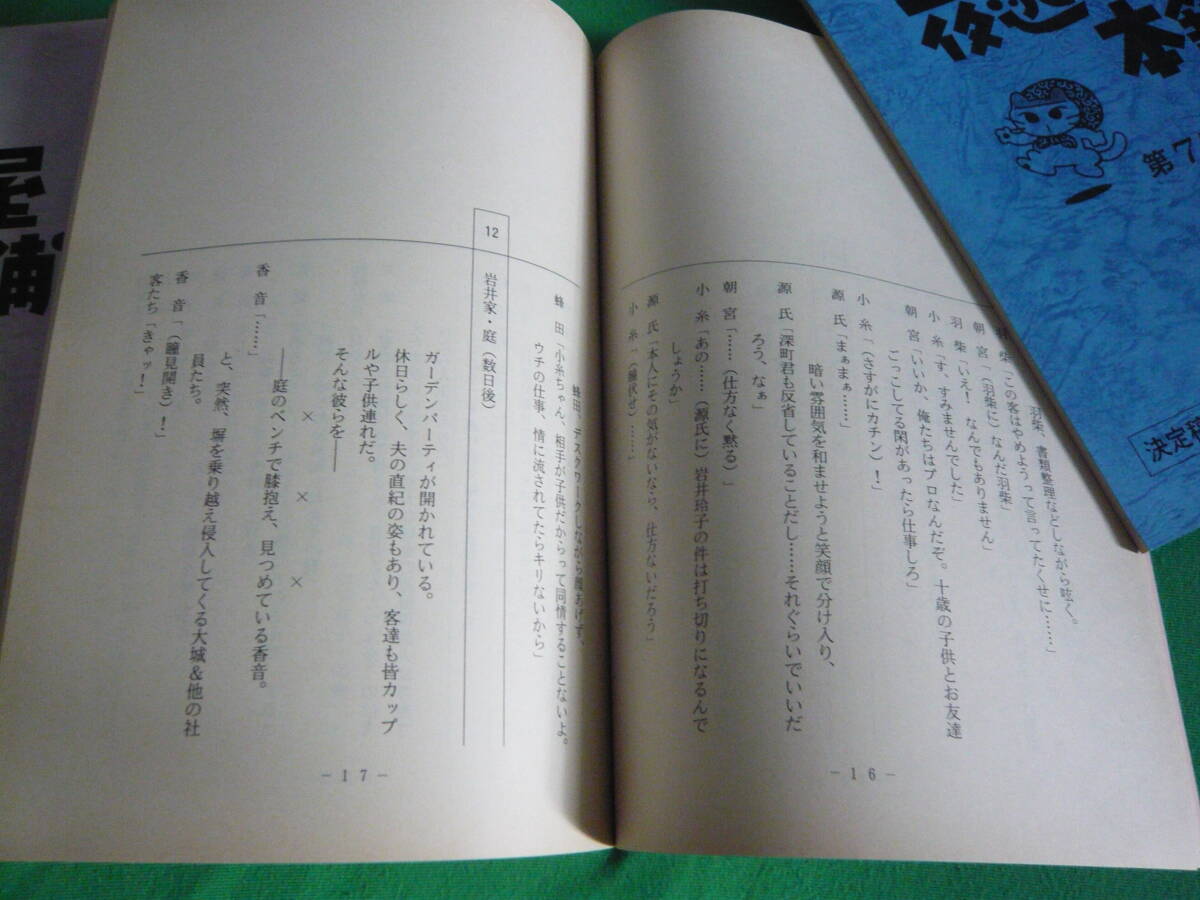 羽柴、書類整理などしながら呟く。
羽柴「この客はやめようって言ってたくせに……」
朝宮「(羽柴に)なんだ羽柴」
羽柴「いえ! なんでもありません」
小糸「す、すみませんでした」
朝宮「いいか、俺たちはプロなんだぞ。十歳の子供とお友達
ごっこしてる閑があったら仕事しろ」
小糸「(さすがにカチン)!」
源氏「まぁまぁ……」
暗い雰囲気を和ませようと笑顔で分け入り、
源氏「深町君も反省していることだし……それぐらいでいいだ
ろう、なぁ」
朝宮「……(仕方なく黙る)
小糸「あの……(源氏に)岩井玲子の件は打ち切りになるんで
しょうか」
源氏「本人にその気がないなら、仕方ないだろう」
小糸「(瞳伏せ)……」
-16-
蜂田、デスクワークしながら顔あげず、
蜂田「小糸ちゃん、相手が子供だからって同情することないよ。
ウチの仕事、情に流されてたらキリないから」
12
岩井家・庭(数日後)
ガーデンパーティが開かれている。
休日らしく、夫の直紀の姿もあり、客達も皆カップ
ルや子供連れだ。
そんな彼らを――
× × ×
――庭のベンチで膝抱え、見つめている香音。
香音「……」
と、突然、塀を乗り越え侵入してくる大城&他の社
員たち。
香音「(瞳見開き)!」
客たち「きゃッ!」
-17-
第7
決定稿
屋